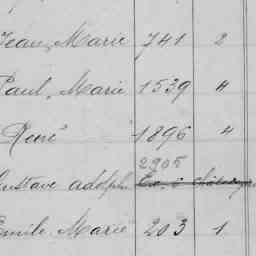 Jean, Marie 741 2
Paul, Marie 1539 4
René 1896 4
2905
Gustave adolph
Emile Marie 203 1